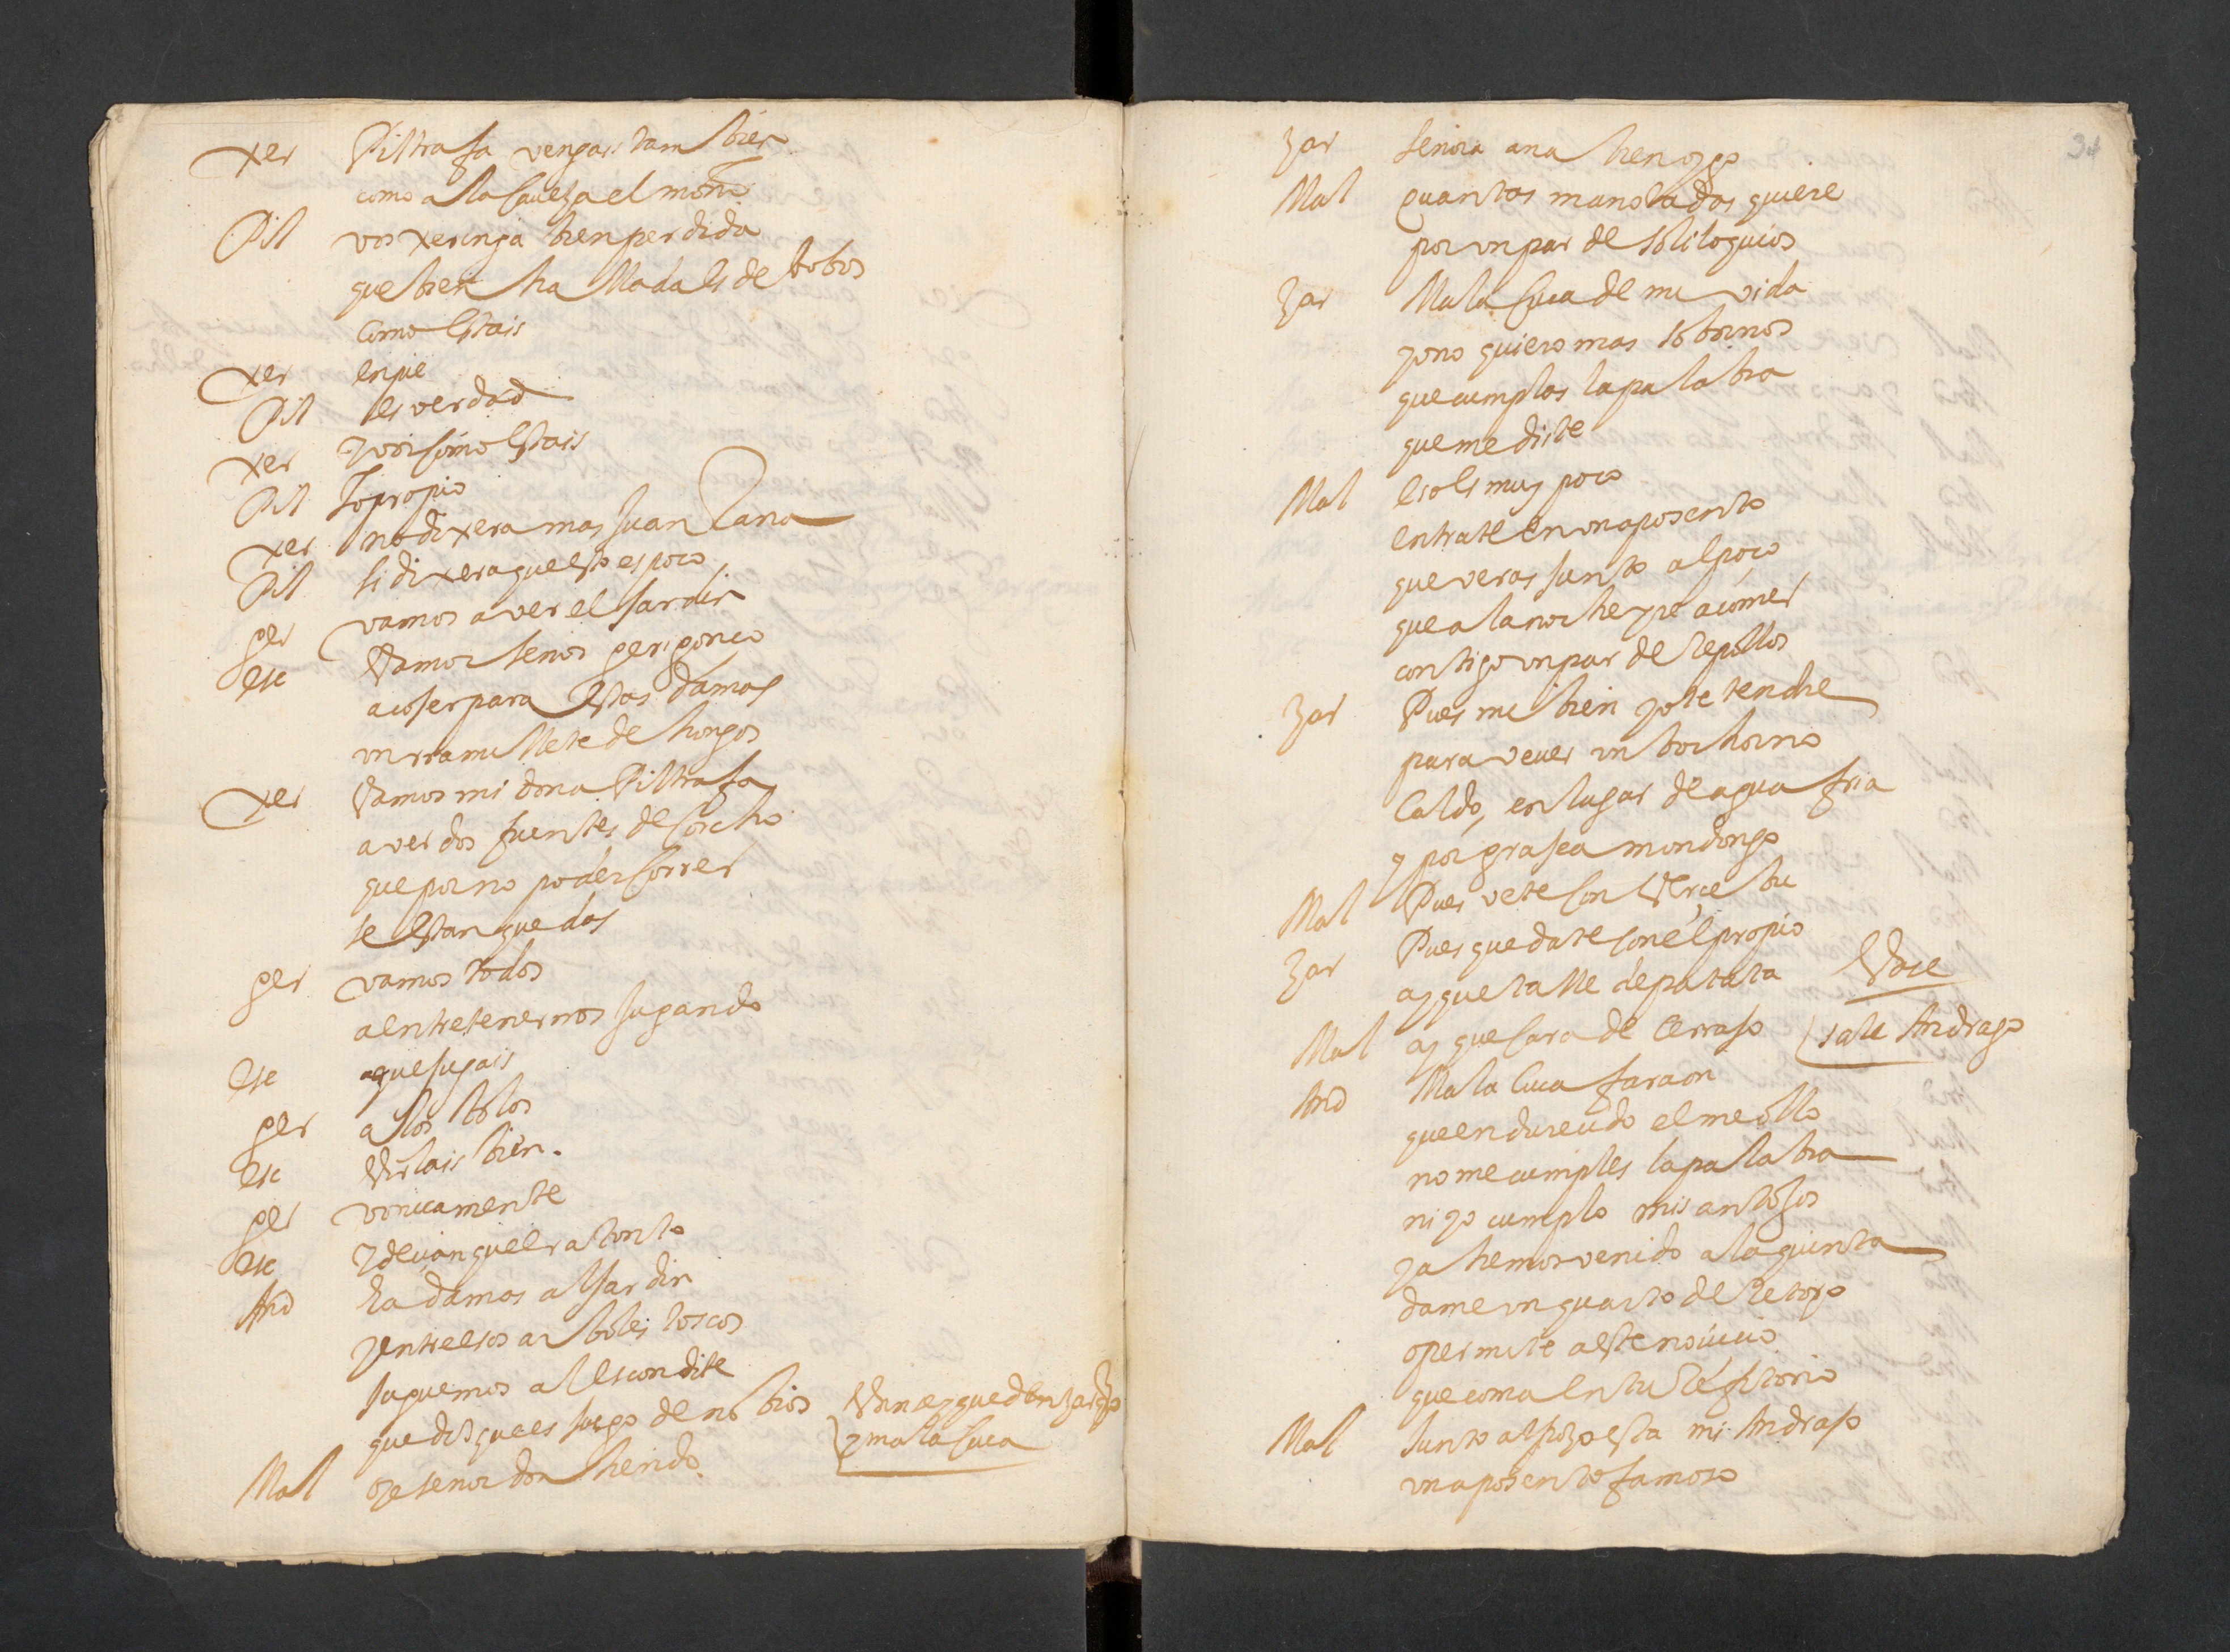 xer Piltrafa vengais tam bien
como a la caueza el moño
Pil vos xeringa bien perdida
que bien ha llada es de bobos
como estais
xer en pie
Pil es verdad
xer y vos como estais
Pil Lo propio
xer no dixera mas Juan Rana
Pil si dixera que esto es poco
ger vamos a ver el Jardin
ese Vamos señor gerigonco
a coser para estas damas
un rramillete de hongos
xer Vamos mi dona Piltrafa
a ver dos fuentes de corcho
que por no poder correr
se estan quedas
ger vamos todos
a entretenernos Jugando
ese a que Jugais
ger a los bolos
ese Virlais bien.
ger vnicamente
ese
And Ea damas al Jardin
y entre esos ar boles toscos
Juguemos al escondite
que dis que es Juego de no bios
Mal oye senor don herido
y mala cuca
34
Zar senora ana bien oygo
Mal quantas manotadas quiere
por un par de soliloquios
Zar Mala cuca de mi vida
yo no quiero mas sobornos
que cumplas la pa la bra
que me diste
Mal eso es muy poco
entrate en un aposento
que veras Junto al poço
que a la noche yre a comer
contigo un par de repollos
Zar Pues mi bien yo te tendre
para veuer un bochorno
Caldo, en lugar de agua fria
y por grasea mondongo
Mal Pues vete con Verçe bu
Zar Pues quedate con el propio
ay que talle de patata Vase
Mal ay que cara de cerrojo sale Andrajo
And Mala cuca faraon
que endurecido el meollo
no me cumples la pa la bra
ni yo cumplo mis antojos
ya hemos venido a la quinta
dame un quarto de retoço
o permite a este nouicio
que coma en tu refitorio
Mal Junto al pozo esta mi Andrajo
un aposento famoso